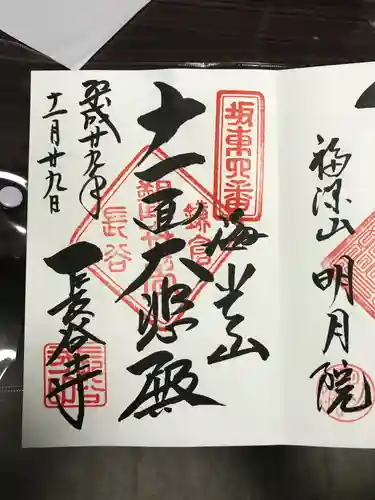 福源山
明月院
坂東四番
海光山
鎌倉
十一面大悲殿
長谷
平成廿九年
十一月廿九日
長谷寺